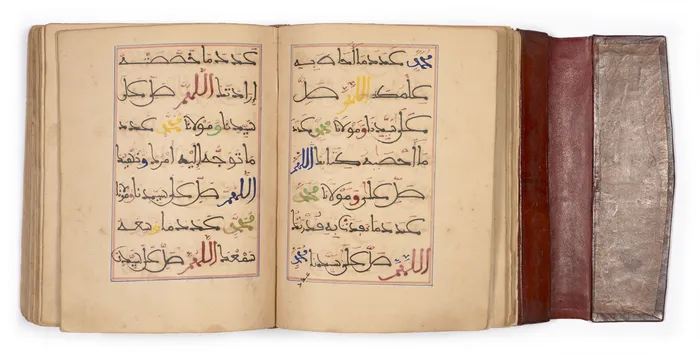 محمد عدد ما احاط به
علمك اللهم صل
على سيدنا ومولانا محمد عدد
ما احصه كتابك اللهم
صل على ومولانا محمد
عدد ما نفذت به قدرتك
اللهم صل على سيدنا محمد
عدد ما خصصته
ارادتك اللهم صل على
سيدنا ومولانا محمد عدد
ما توجه اليه امرك ونهيك
اللهم صل على سيدنا ومولانا
محمد عدد ما وسعه
سمعك اللهم صل على سيدنا